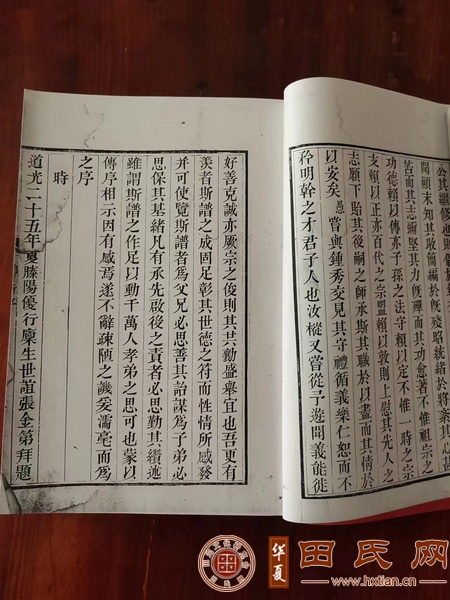 公其繼修也則
間頗末知其收簡編於殘略統緒於將其心甚
苦而其志彌堅其力旣殫而其功愈著不惟祖宗之
功德賴以傳亦子孫之法守賴以定不惟一時之宗
支賴以正亦百代之宗盟賴以敦則上慰其先人之
志願下貽其後嗣之師承斯其職於以盡而其情於
以安矣愚嘗與鍾秀交見其守禮循義樂仁恕而不
矜明幹之才君子人也汝樅又嘗從予遊聞義能徙
好善克誠亦厥宗之俊則其共勷盛舉宜也吾更有
羨者斯譜之成固足彰其世德之符而性情所感發
并可使覽斯譜者爲父兄必思善其詒謀爲子弟必
思保其基緒凡有承先啟後之責者必思勤其纘述
雖謂斯譜之作足以動千萬人孝弟之思可也蒙以
傳序相示因有感焉遂不辭疎陋之譏妄濡毫而爲
之序
時
道光二十五年夏滕陽優行廩生世誼張金第拜題
華夏
田氏网
www.hxtian.cn